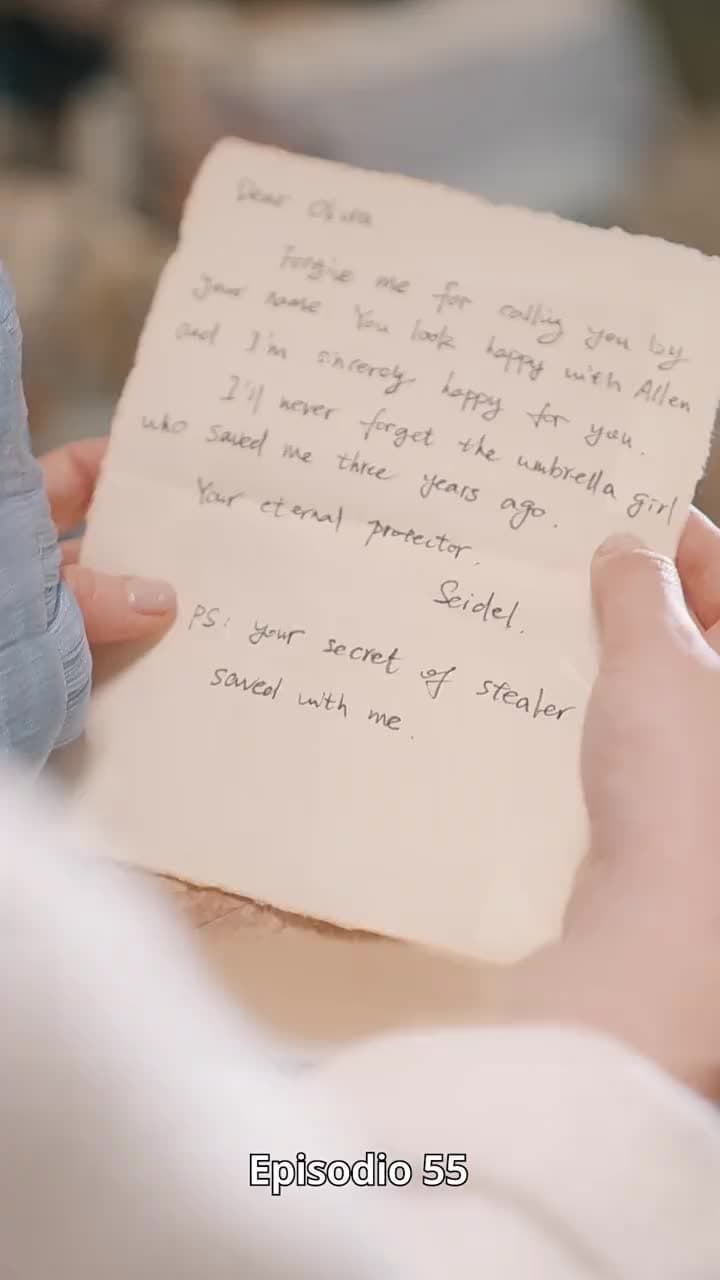 Dear
Forgive me for calling you by
your name. You look happy with Allen
and I'm sincerely happy for you.
I'll never forget the umbrella girl
who saved me three years ago.
Your eternal protector.
Seidel.
PS: your secret of stealer
saved with me.
Episodio 55